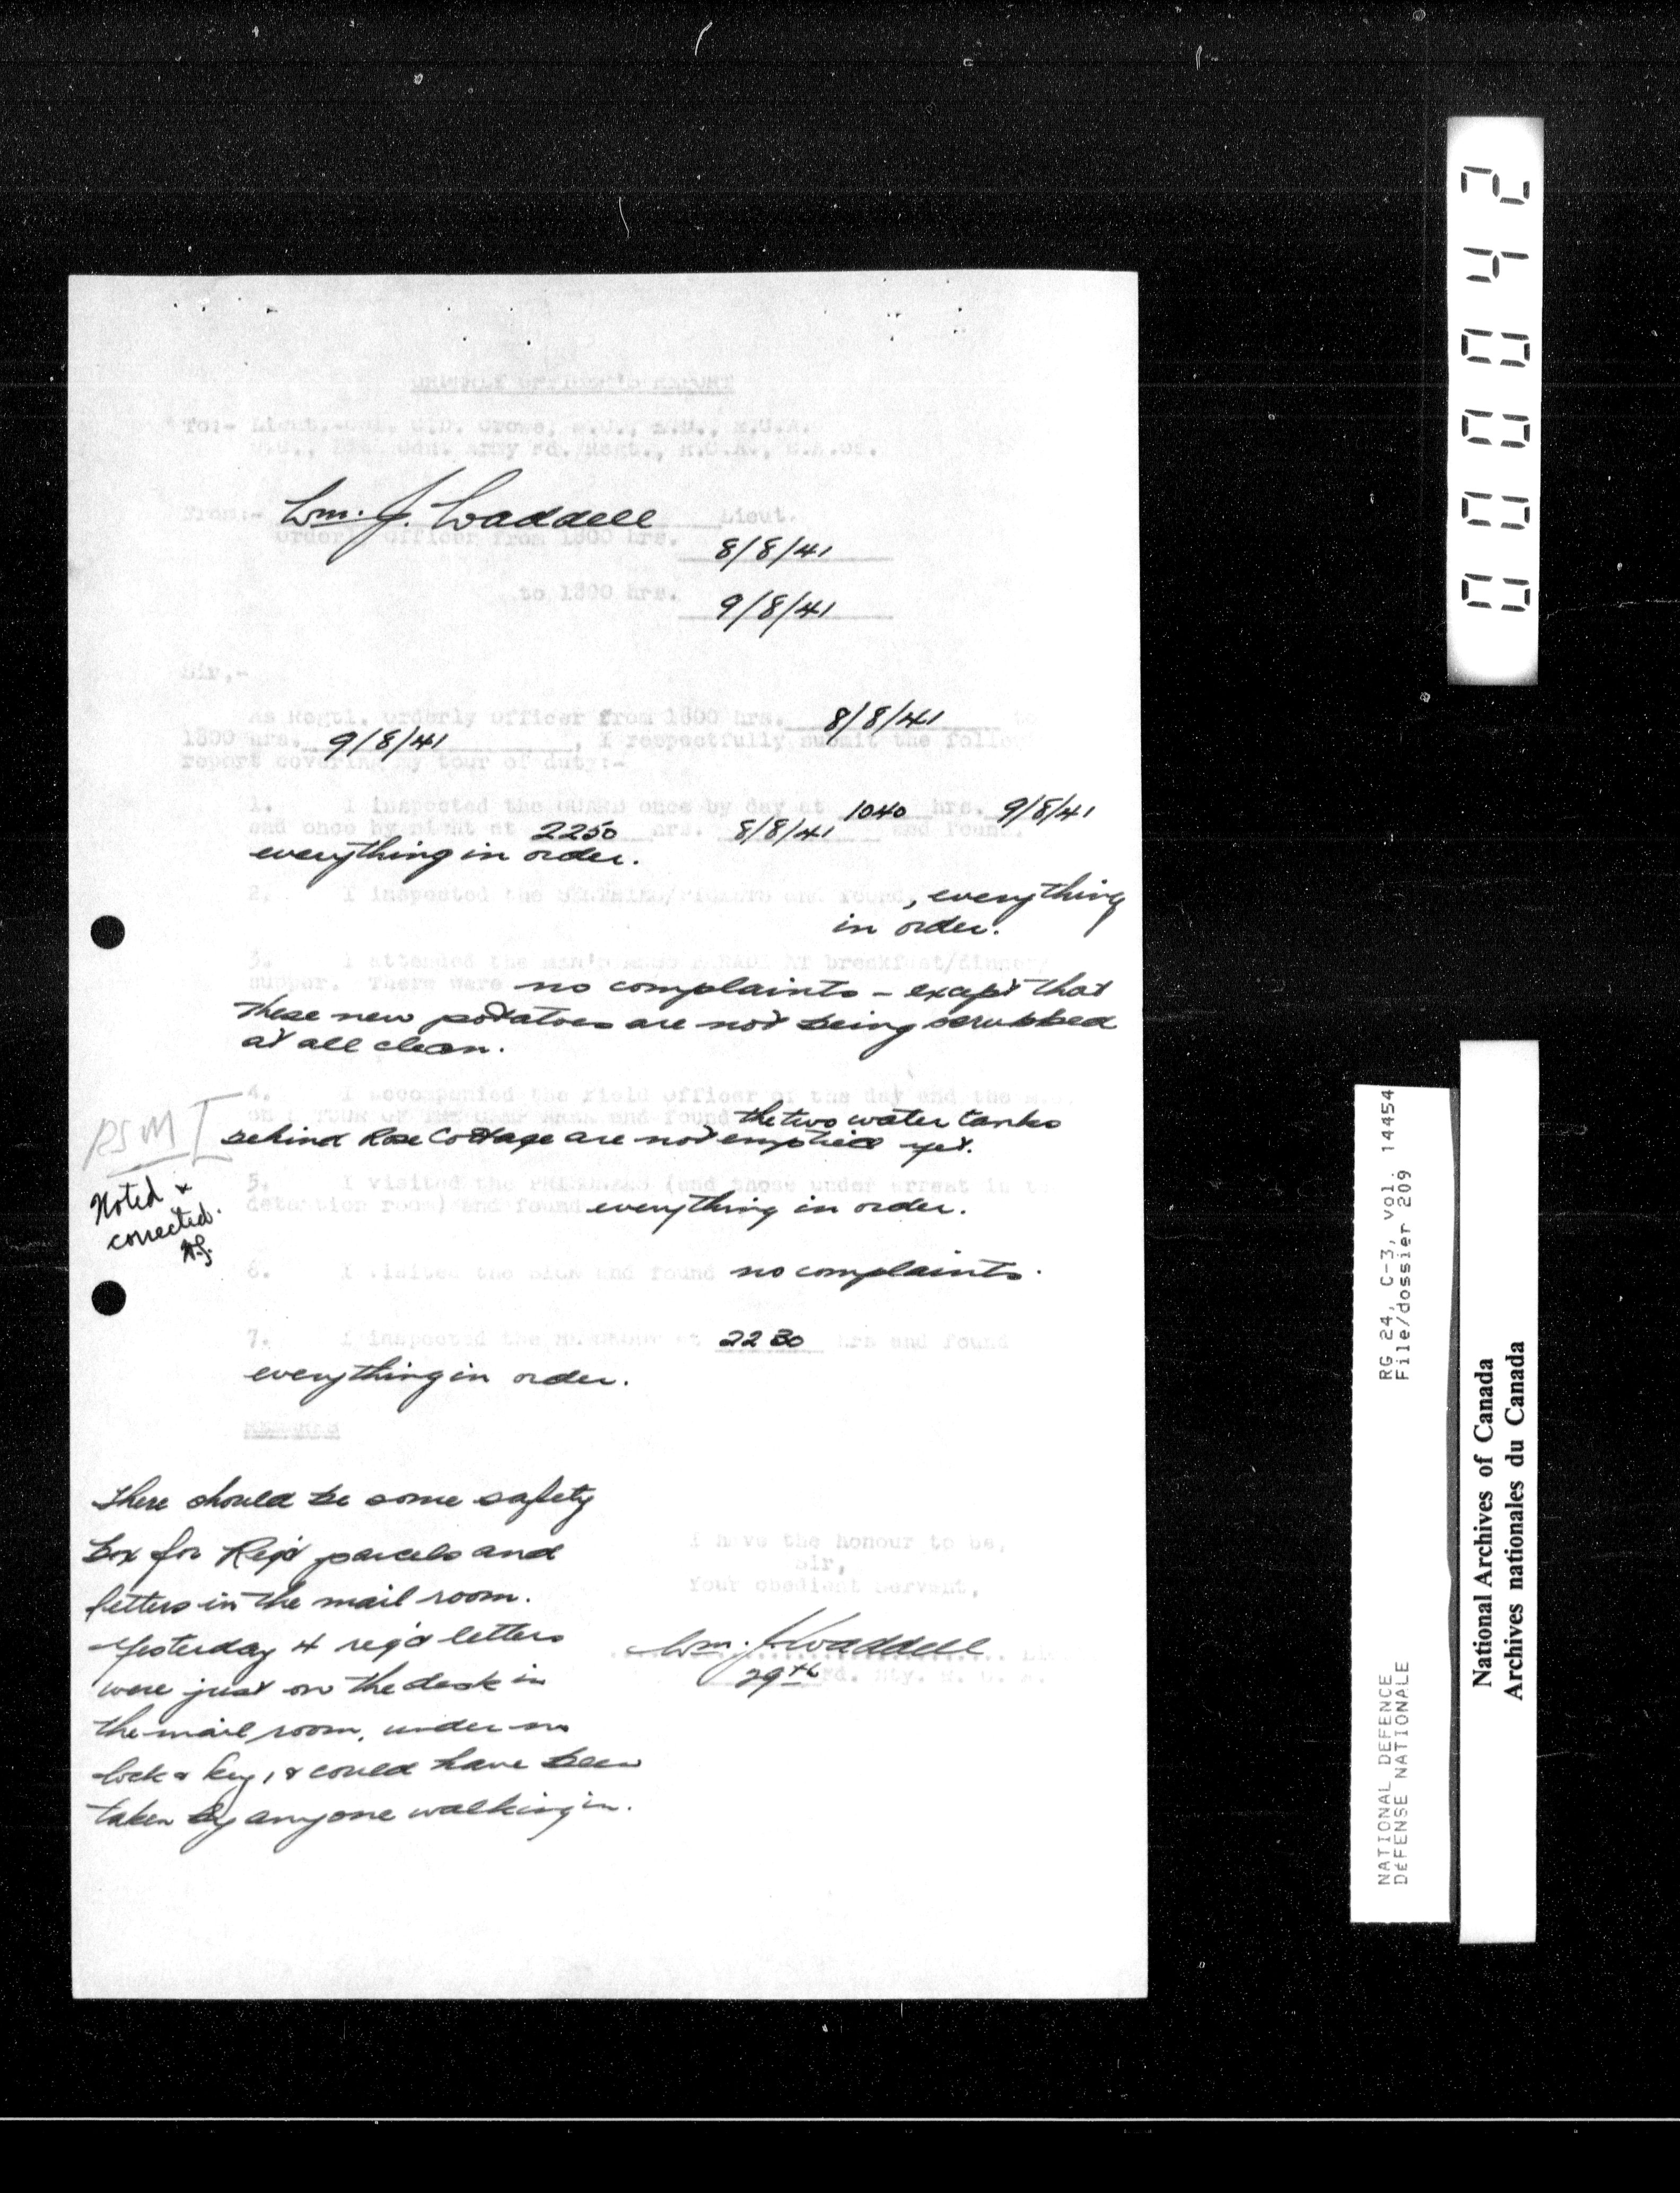 ORDERLY OFFICER'S REPORT
To:- Lieut.-Col. Crowe, R.C.A.
Cdn. Army Fd. Regt., R.C.A., C.A.OS.
From:- Wm. J. Waddell Lieut.
Orderly Officer from 1800 hrs. 8/8/41
to 1800 hrs. 9/8/41
Sir,-
As Regtl. Orderly Officer from 1800 hrs. 8/8/41 to
1800 hrs. 9/8/41, I respectfully submit the follow
report covering my tour of duty:-
1. I inspected the GUARD once by day at 1040 hrs. 9/8/41
and once by night at 2250 hrs. 8/8/41 and found,
everything in order.
2. I inspected the and found, everything
in order.
3. I attended the breakfast/dinner/
supper. There were no complaints - except that
these new potatoes are not being scrubbed
at all clean.
4. I accompanied the Field Officer of the day and the M.O.
on a TOUR OF THE CAMP AREA and found the two water tanks
behind Rose Cottage are not emptied yet.
RSM
Noted &
corrected.
5. I visited the PRISONERS (and those under arrest in t
detention room) and found everything in order.
6. I visited the SICK and found no complaints.
7. I inspected the at 2230 hrs and found
everything in order.
REMARKS
There should be some safety
box for Reg'd parcels and
letters in the mail room.
Yesterday 4 reg'd letters
were just on the desk in
the mail room, under no
lock & key, & could have been
taken by anyone walking in.
I have the honour to be,
Sir,
Your obedient Servant,
Wm. J. Waddell
29th Fd. Bty. R. C. A.
0000042
RG 24, C-3, vol. 14454
File/dossier 209
NATIONAL DEFENCE
DéFENSE NATIONALE
National Archives of Canada
Archives nationales du Canada